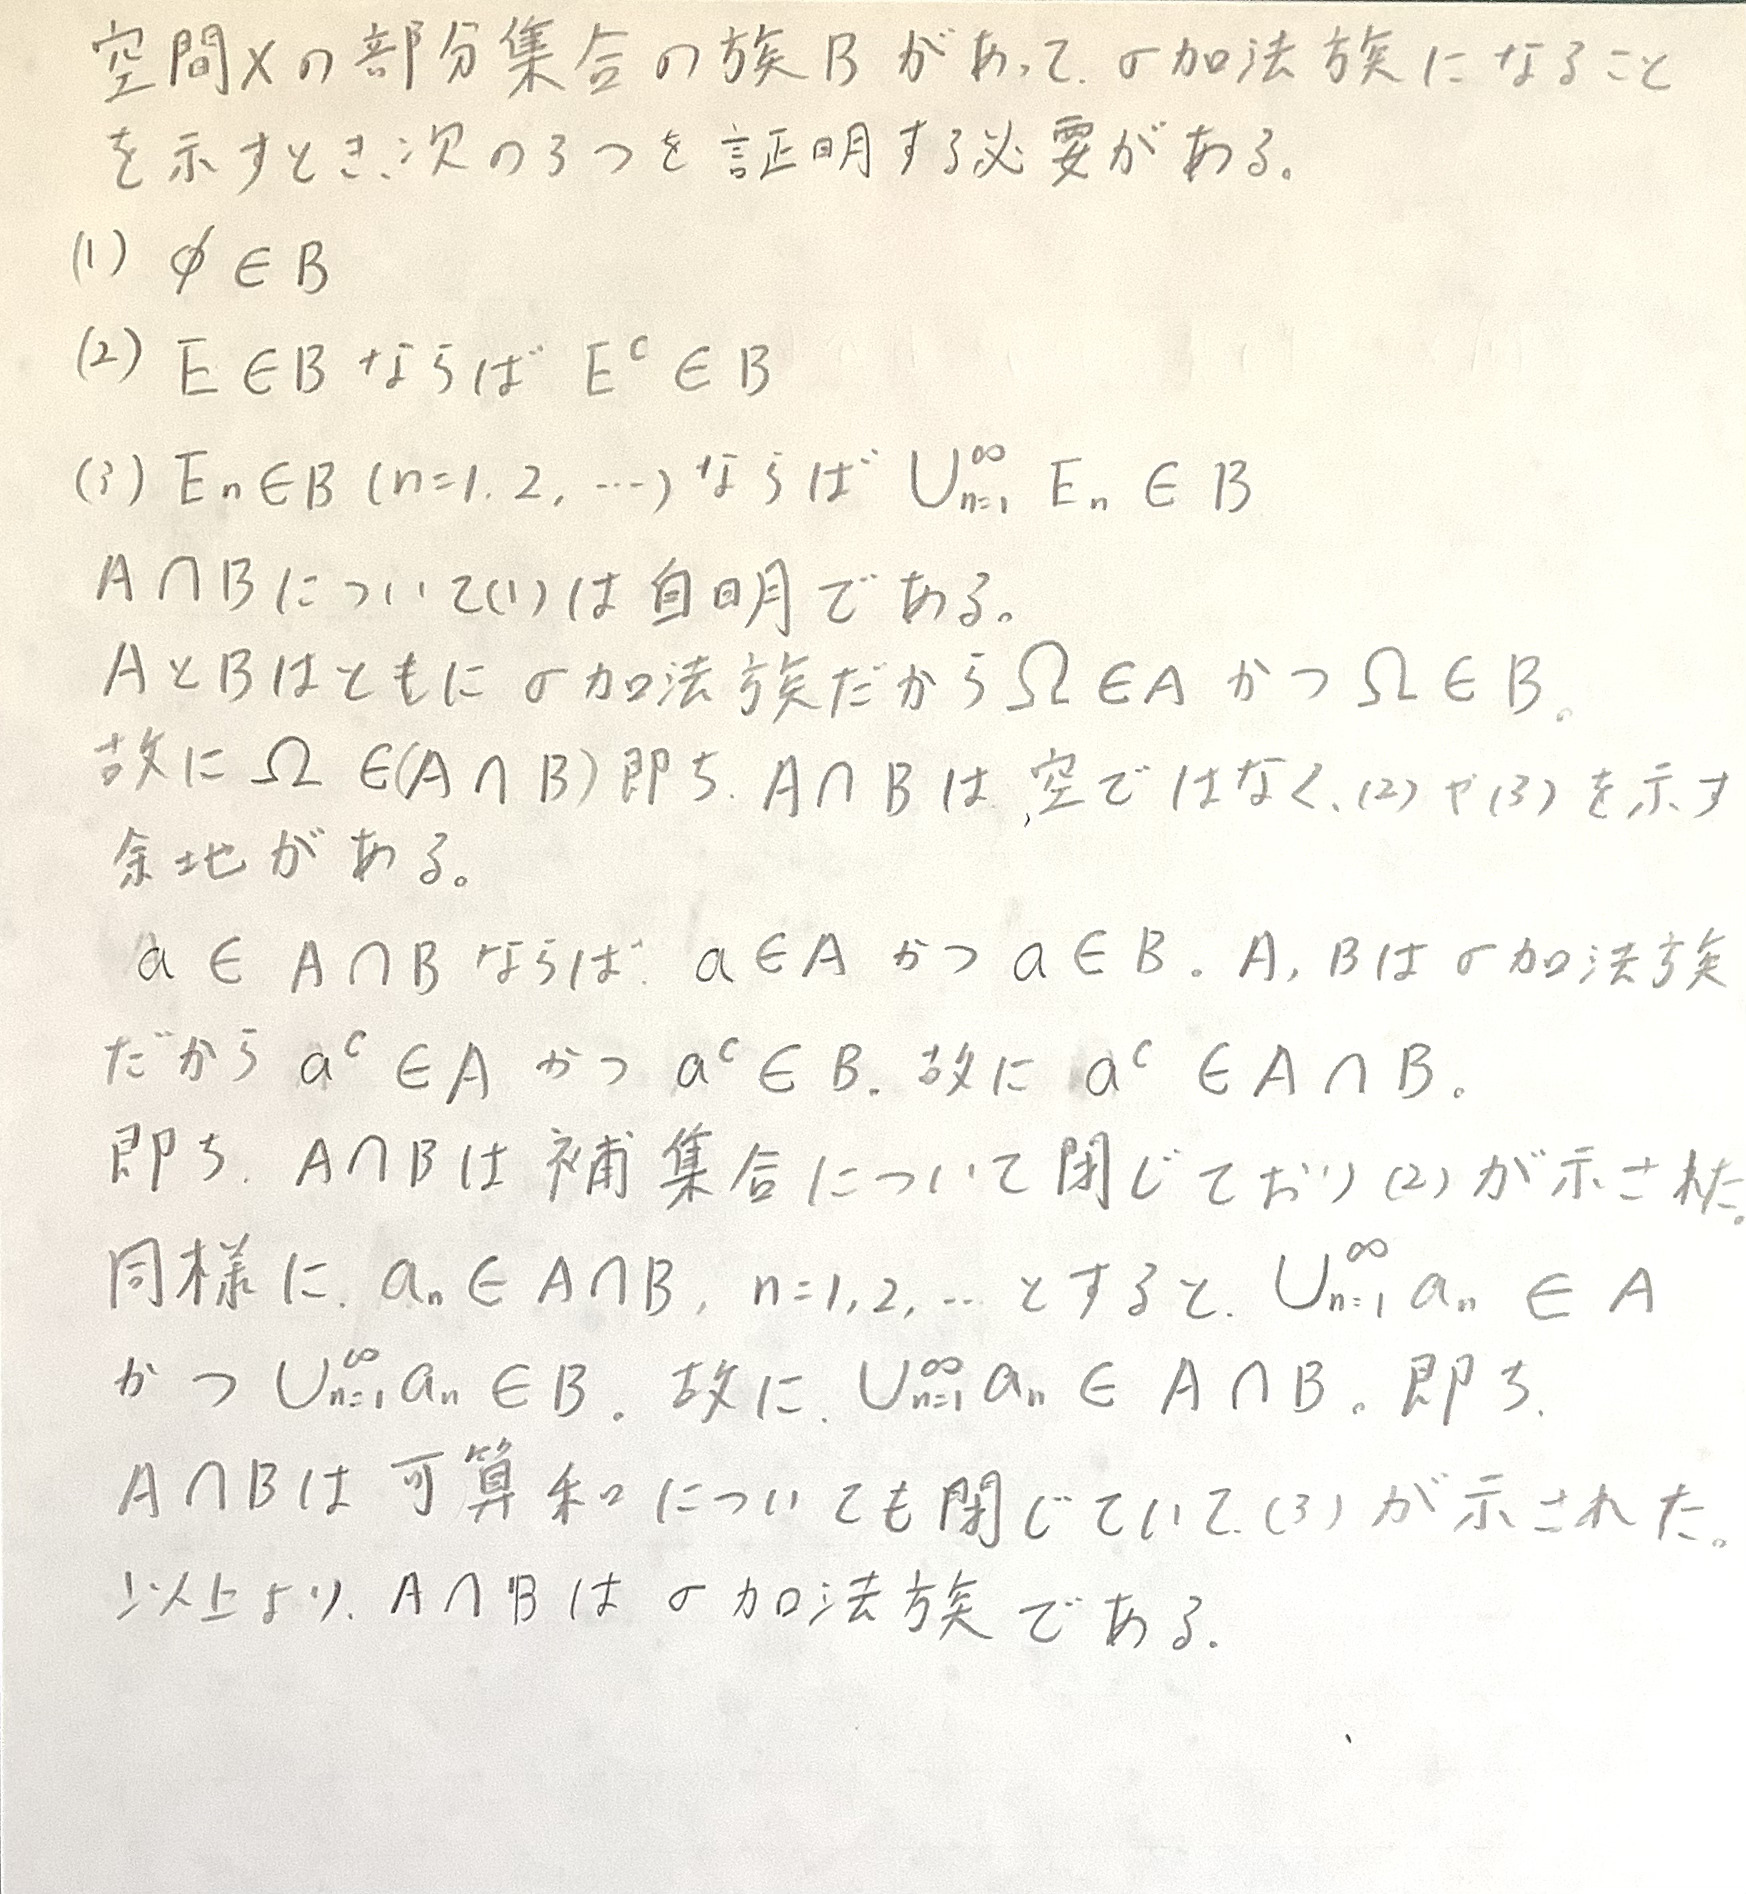 空間Xの部分集合の族Bがあって、σ加法族になること
を示すとき、次の3つを証明する必要がある。
(1) φ ∈ B
(2) E ∈ B ならば E^c ∈ B
(3) En ∈ B (n=1, 2, …) ならば ∪_{n=1}^∞ En ∈ B
A∩Bについて(1)は自明である。
AとBはともにσ加法族だからΩ∈A かつ Ω ∈ B。
故に Ω ∈(A∩B) 即ち、A∩B は、空ではなく、(2)や(3)を示す
余地がある。
a ∈ A∩B ならば、a∈A かつ a∈B。A, Bはσ加法族
だから a^c ∈ A かつ a^c ∈ B。故に a^c ∈ A∩B。
即ち、A∩Bは補集合について閉じており(2)が示された。
同様に、an ∈ A∩B, n=1,2,… とすると、∪_{n=1}^∞ an ∈ A
かつ ∪_{n=1}^∞ an ∈ B。故に、∪_{n=1}^∞ an ∈ A∩B。即ち、
A∩Bは可算和についても閉じていて、(3)が示された。
以上より、A∩Bはσ加法族である。